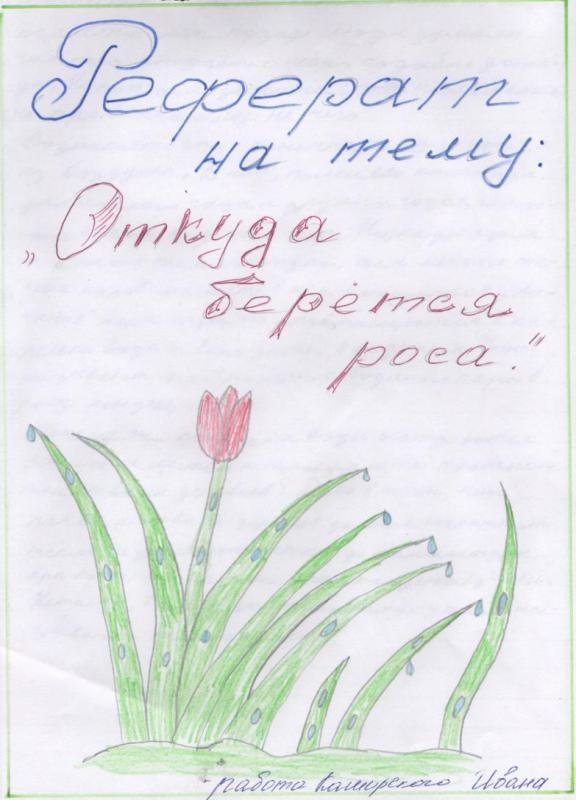 Реферат
на тему:
„Откуда
берётся
роса."
работа Каширского Ивана